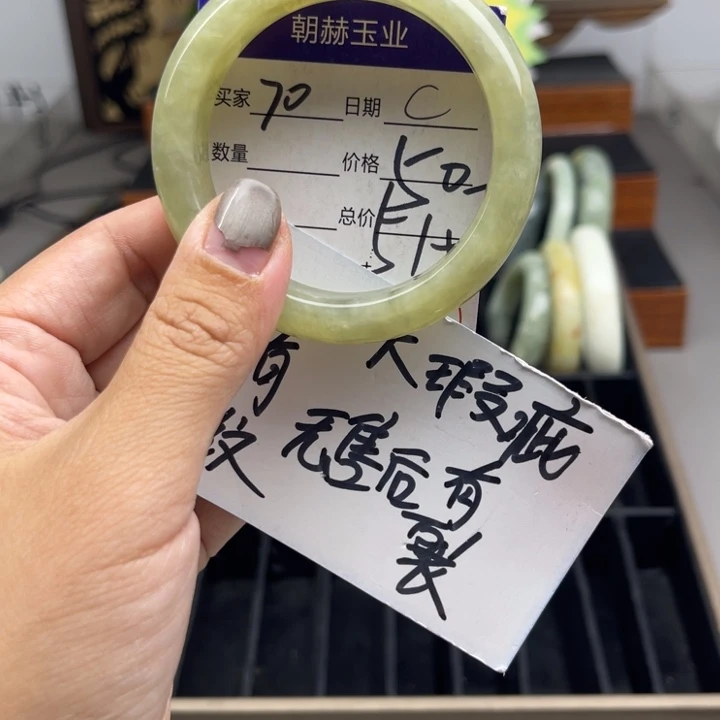 朝赫玉业
买家 70 日期 C
数量 价格 50
总价 51
有 大瑕疵
纹 无售后有
裂